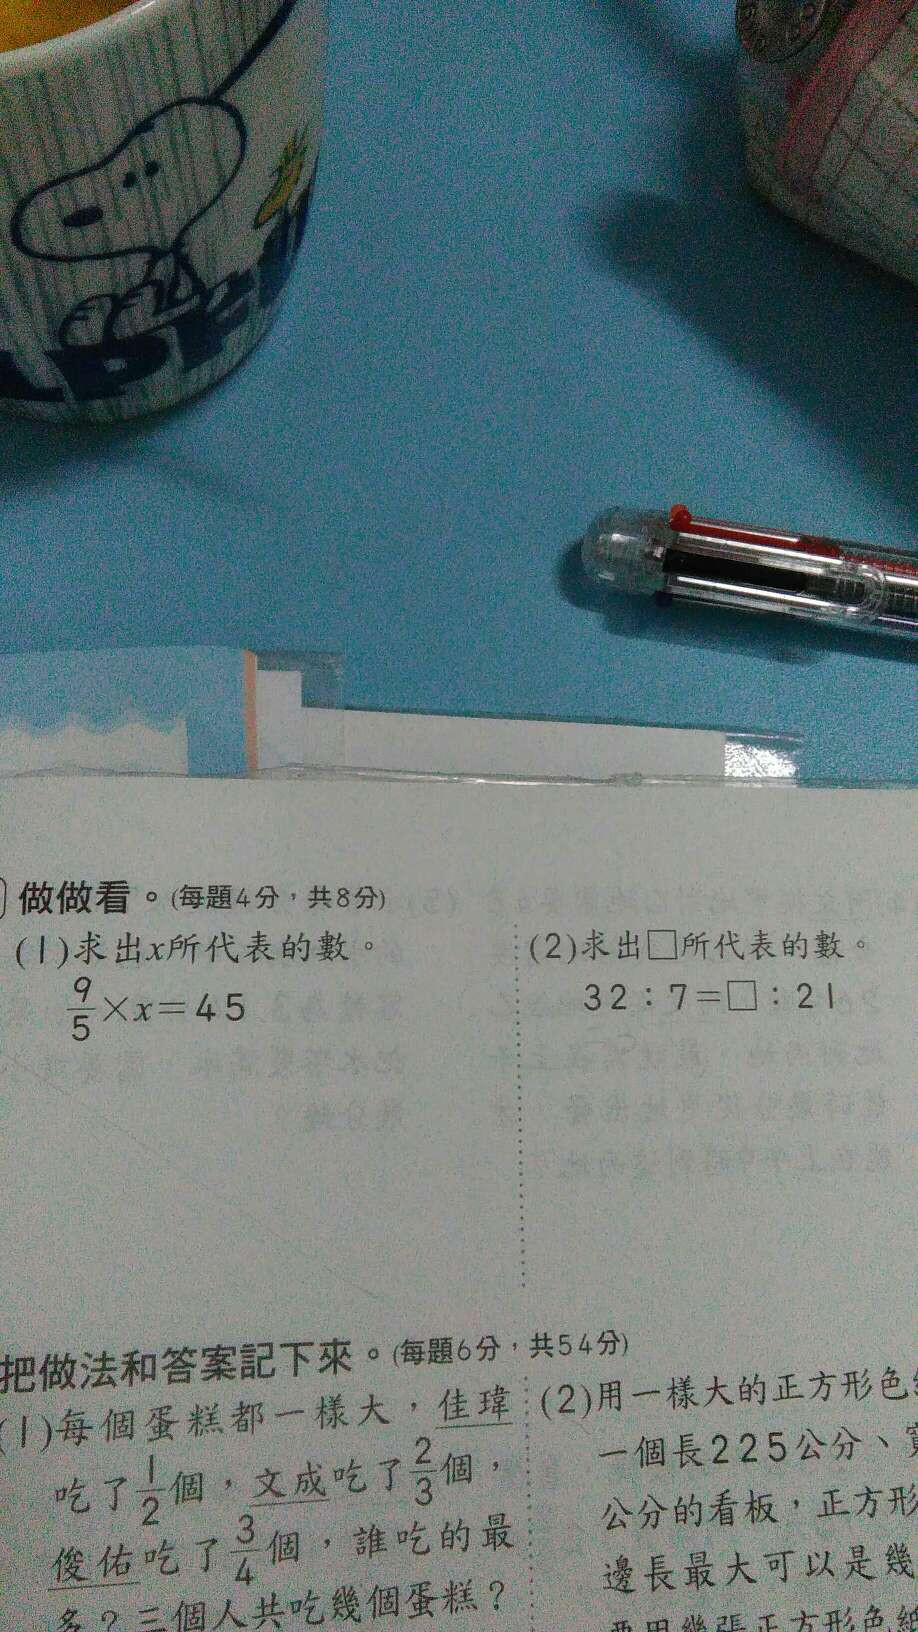 做做看。(每題4分，共8分)
(1)求出x所代表的數。
9/5×x=45
(2)求出□所代表的數。
32：7=□：21
把做法和答案記下來。(每題6分，共54分)
(1)每個蛋糕都一樣大，佳瑋
吃了1/2個，文成吃了2/3個，
俊佑吃了3/4個，誰吃的最
多？三個人共吃幾個蛋糕？
(2)用一樣大的正方形色
一個長225公分、
公分的看板，正方形
邊長最大可以是幾
要用幾張正方形色紙